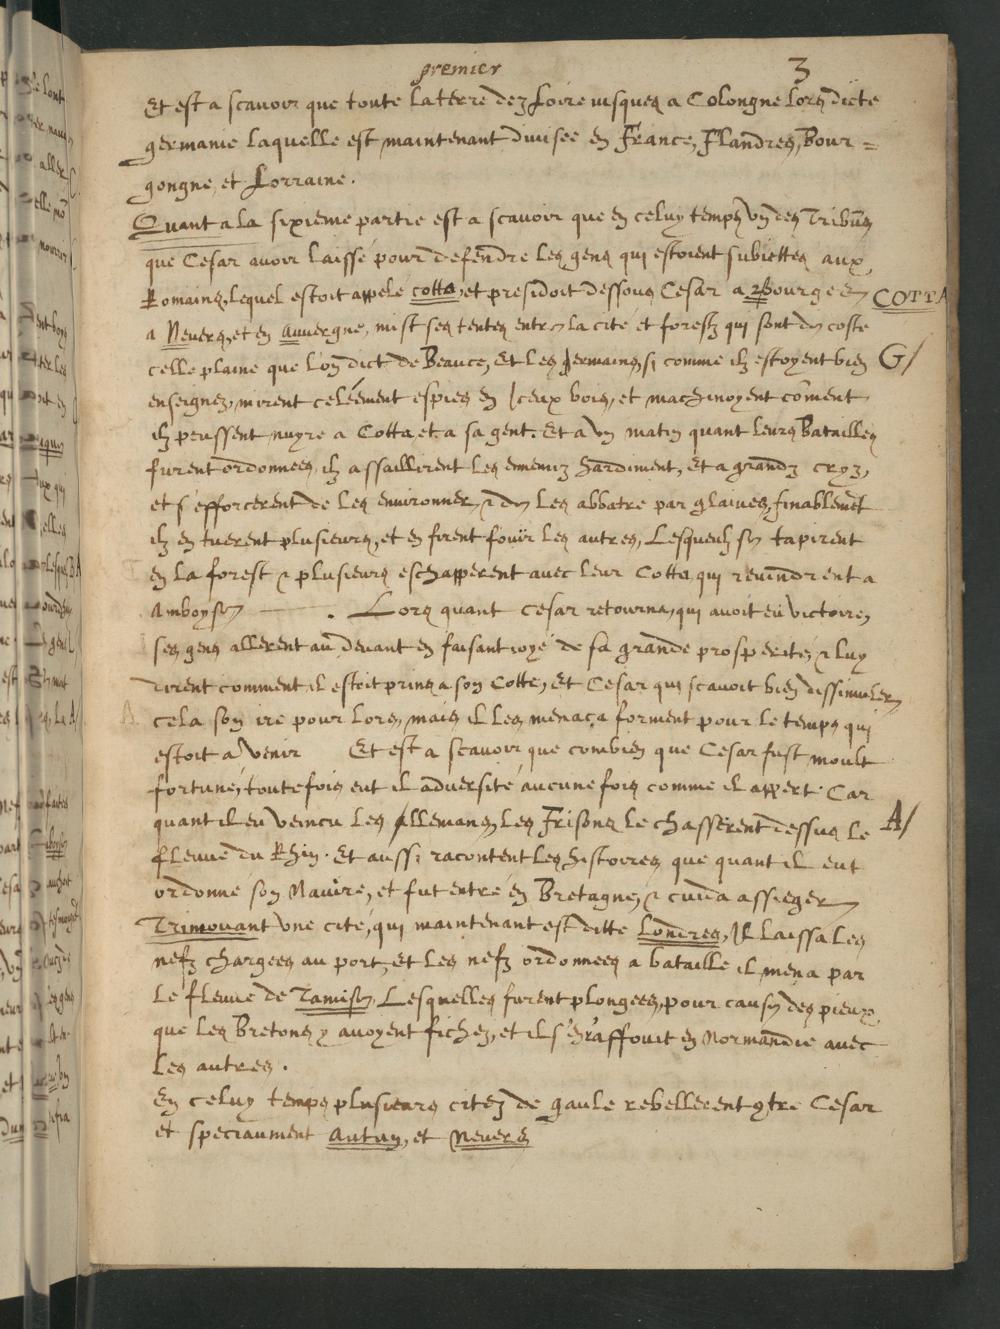 premier 3
Et est a scavoir que toute la terre dez Loire iusques a Colongne lors dicte
germanie laquelle est maintenant divisee en France, Flandres, Bour=
gongne, et Lorraine.
Quant a la sixieme partie est a scavoir que en celuy temps vn des Tribuns
que Cesar avoir laissé pour defendre les gens qui estoient subiettes aux
Romains, lequel estoit appelé cotta, et presidoit dessous Cesar a Bourges COTTA
a Nevers, et en auvergne, mist ses tentes entre la cité et forestz qui sont du coste
celle plaine que l'on dict de Beauce, Et les germains, si comme ilz estoyent bien G/
enseignez, mirent celéement espies en iceux bois, et machinoyent coment
ilz peussent nuyre a Cotta, et a sa gent. Et a vn matin quant leurs Batailles
furent ordonnees, ilz assaillirent les ennemiz hardiment, et a grandz cryz,
et s'efforcerent de les environner, & du les abbatre par glaives, finablemet
ilz en tuerent plusieurs, et en firent fouïr les autres, Lesquelz se tapirent
en la forest & plusieurs eschapperent avec leur Cotta, qui revindrent a
Amboyse . Lors quant cesar retourna, qui avoit eü victoire,
ses gens allerent au devant en faisant ioye de sa grande prosperité, & luy
dirent comment il estoit prins a son Cotte, Et Cesar qui scavoit bien dissimuler
cela son ire pour lors, mais il les menaça forment pour le temps qui
estoit a venir Et est a scavoir que combien que Cesar fust moult
fortuné, toutefois eut il adversité aucune fois comme il appert. Car
quant il eu veincu les Allemans, les Frisons le chasserent dessus le A/
fleuve du Rhin. Et aussi racontent les histoires, que quant il eut
ordonné son Navire, et fut entré en Bretagne, & cuida assieger
Trinouant vne cité, qui maintenant est ditte Londres, Il laissa les
nefz chargees au port, et les nefz ordonnees a bataille il mena par
le fleuve de Tamise, Lesquelles furent plongees, pour cause des pieux
que les Bretons y avoyent fichez, et il s'en raffouit en Normandie avec
les autres.
En celuy temps plusieurs citez de gaule rebellerent 9tre Cesar
et speciaument Autun, et Nevers